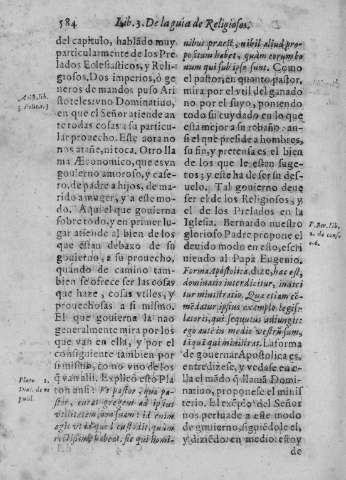 584 Lib. 3. De la guia de Religiosos.
del capitulo, hablãdo muy
particularmente de los Pre
lados Eclesiasticos, y Reli-
giosos. Dos imperios, ó ge
neros de mandos puso Ari
stoteles: vno Dominatiuo,
en que el Señor atiende an
te todas cosas a su particu-
lar prouecho. Este aora no
nos atañe, ni toca. Otro lla
ma Æconomico, que es vn
gouierno amoroso, y case-
ro, de padre a hijos, de ma-
rido a muger, y a este mo-
do. Aqui el que gouierna
sobre todo, y en primer lu-
gar atiende al bien de los
que estan debaxo de su
gouierno, a su prouecho,
quando de camino tam-
bien se ofrece ser las cosas
que haze, cosas vtiles, y
prouechosas a si mismo.
El que gouierna la nao
generalmente mira por los
que van en ella, y por el
consiguiente tambien por
si mismo, como vno de los
q̃ van alli. Explicó esto Pla
ton assi: Vt pastor, qua pa-
stor, curat gregem ad ipsius
vtilitatem, non suam: id enim
agit vt quod custodit, quam
rectissime habeat: sic qui homi-
Arist. lib.
3. Polit.
Plato 1.
Dial. de re
publ.
nibus præest, nihil aliud pro-
positum habet, quam eorum bo
num qui sub ipso sunt. Como
el pastor, en quanto pastor,
mira por el vtil del ganado
no por el suyo, poniendo
todo su cuydado en lo que
està mejor a su rebaño: an-
si el que preside a hombres,
su fin, y pretensa es el bien
de los que le estan suge-
tos; y este ha de ser su des-
uelo. Tal gouierno deue
ser el de los Religiosos, y
el de los Prelados en la
Iglesia. Bernardo nuestro
glorioso Padre propone el
deuido modo en esto, escri
uiendo al Papa Eugenio.
Forma Apostolica, dize, hæc est,
dominatio interdicitur, indici
tur ministratio. Quæ etiam cõ-
mẽdatur ipsius exemplo legis-
latoris, qui sequutus adiungit:
ego autẽ in medio vestrũ sum,
t͂ qui ministrat. La forma
de gouernar Apostolica es,
entredizese, y vedase en e-
lla el mãdo q̃ llamã Domi-
natiuo, proponese el minis-
terio. El exẽplo del Señor
nos persuade a este modo
de gouierno, siguiẽdole el,
y diziẽdo, en medio estoy
de
P. Ber. lib.
2. de consi-
d.